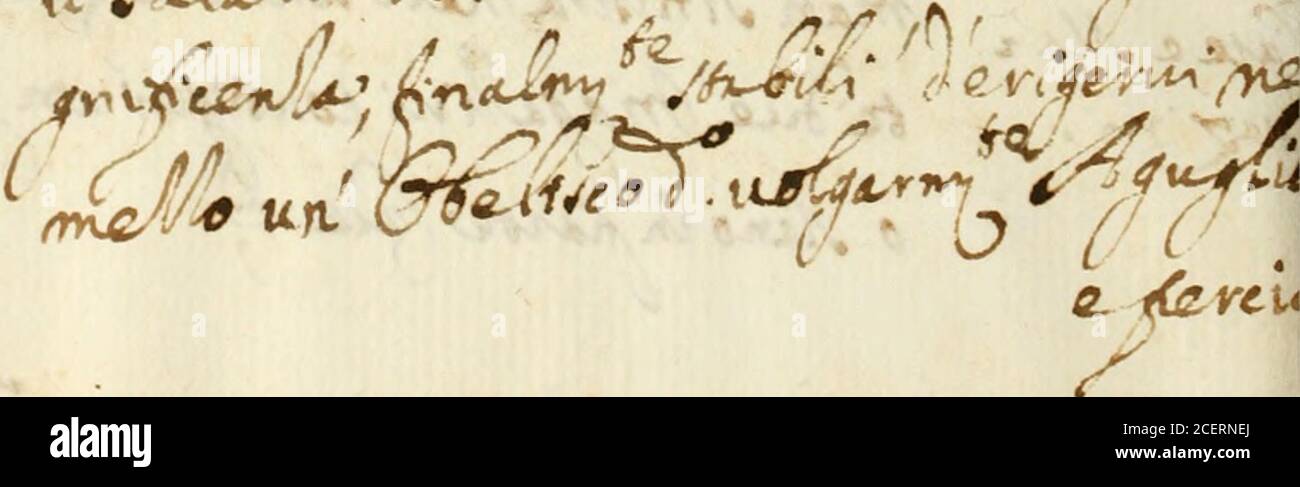 gnificenza, finalm.te stabili d'erigerui ne
mezzo un' Obelisco d.o uolgarm.te Aguglia
e perciò
alamy
alamy
Image ID: 2CERNEJ
www.alamy.com